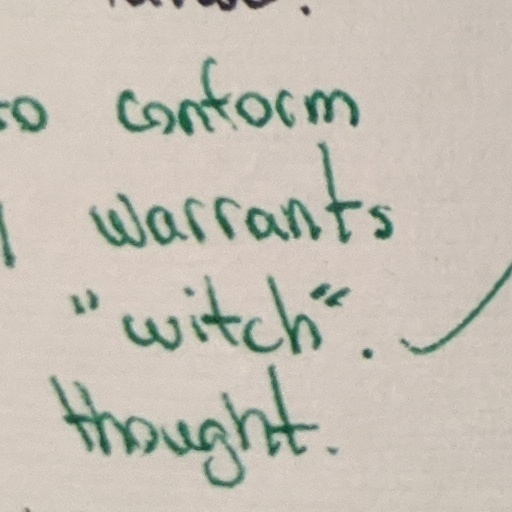 to conform
warrants
"witch".
thought.